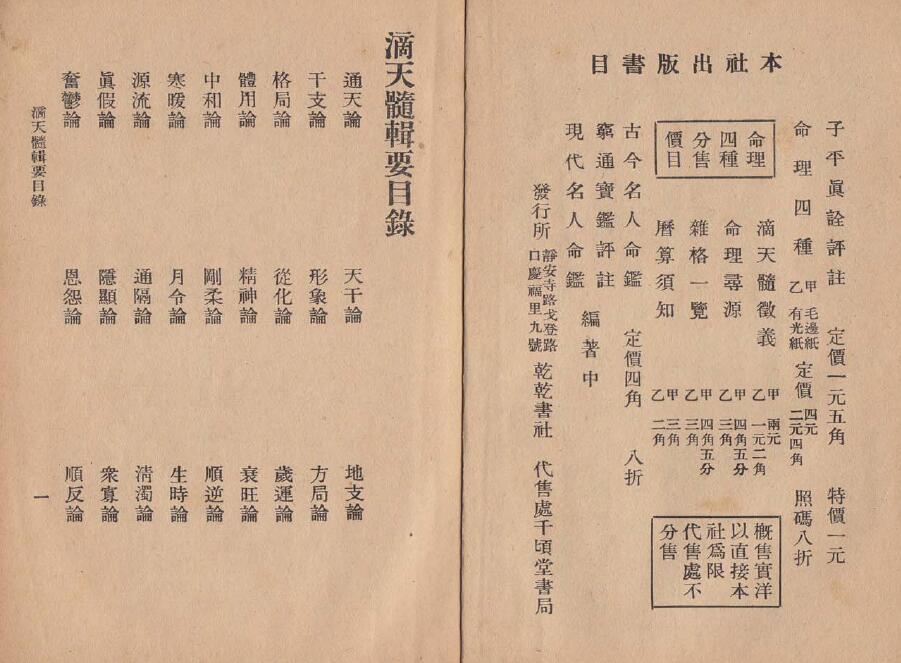 本社出版書目
子平眞詮評註　定價一元五角　特價一元
命理四種　甲毛邊紙　乙有光紙　定價　四元　二元四角　照碼八折
命理
四種
分售
價目
滴天髓徵義　甲兩元　乙一元二角
命理尋源　甲四角五分　乙三角
雜格一覽　甲四角五分　乙三角
曆算須知　甲三角　乙二角
概售實洋
以直接本
社爲限
代售處不
分售
古今名人命鑑　定價四角　八折
窮通寶鑑評註　編著中
現代名人命鑑
發行所　靜安寺路戈登路口慶福里九號　乾乾書社　代售處千頃堂書局
滴天髓輯要目錄
通天論　天干論　地支論
干支論　形象論　方局論
格局論　從化論　歲運論
體用論　精神論　衰旺論
中和論　剛柔論　順逆論
寒暖論　月令論　生時論
源流論　通隔論　清濁論
眞假論　隱顯論　衆寡論
奮鬱論　恩怨論　順反論
滴天髓輯要目錄　一